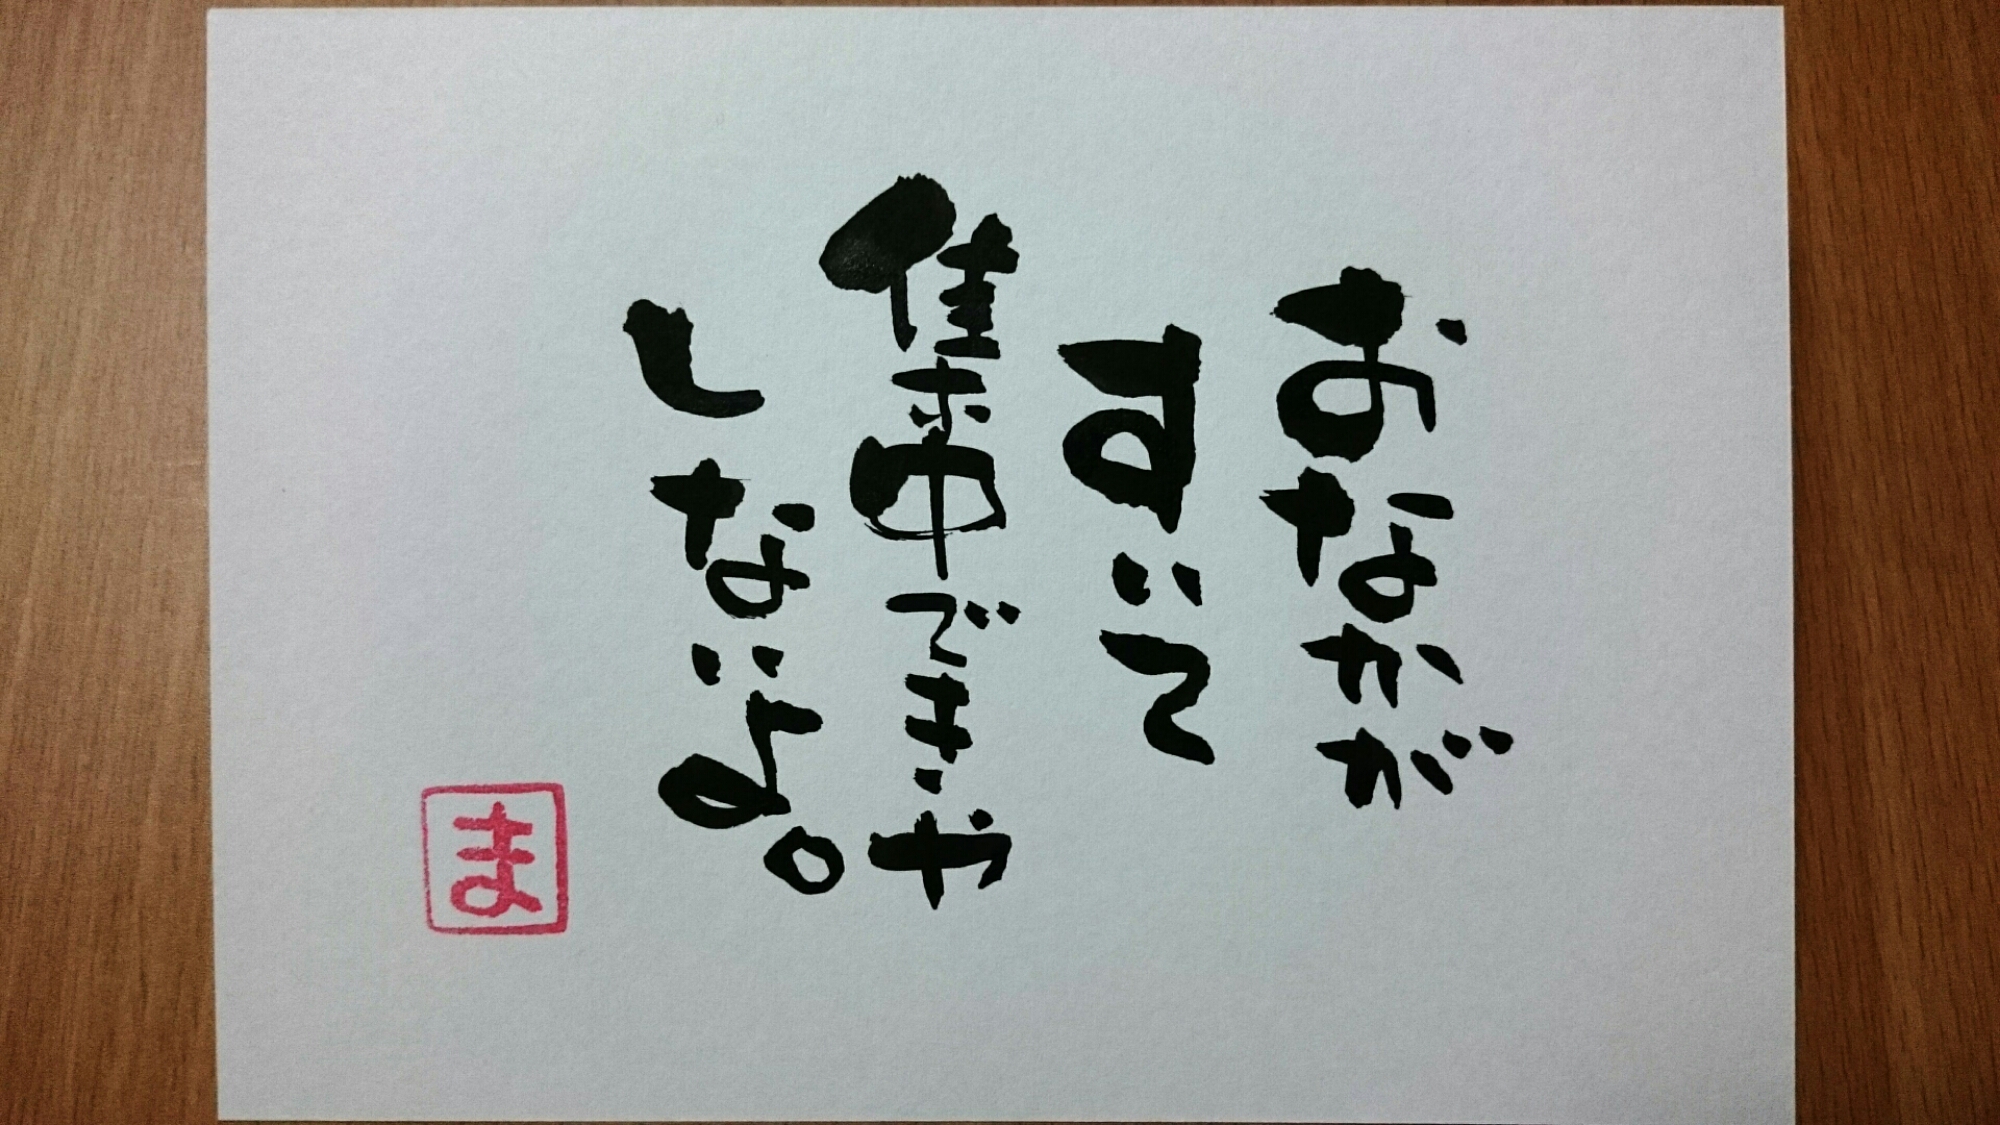 おなかが
すいて
集中できや
しないよ。
ま